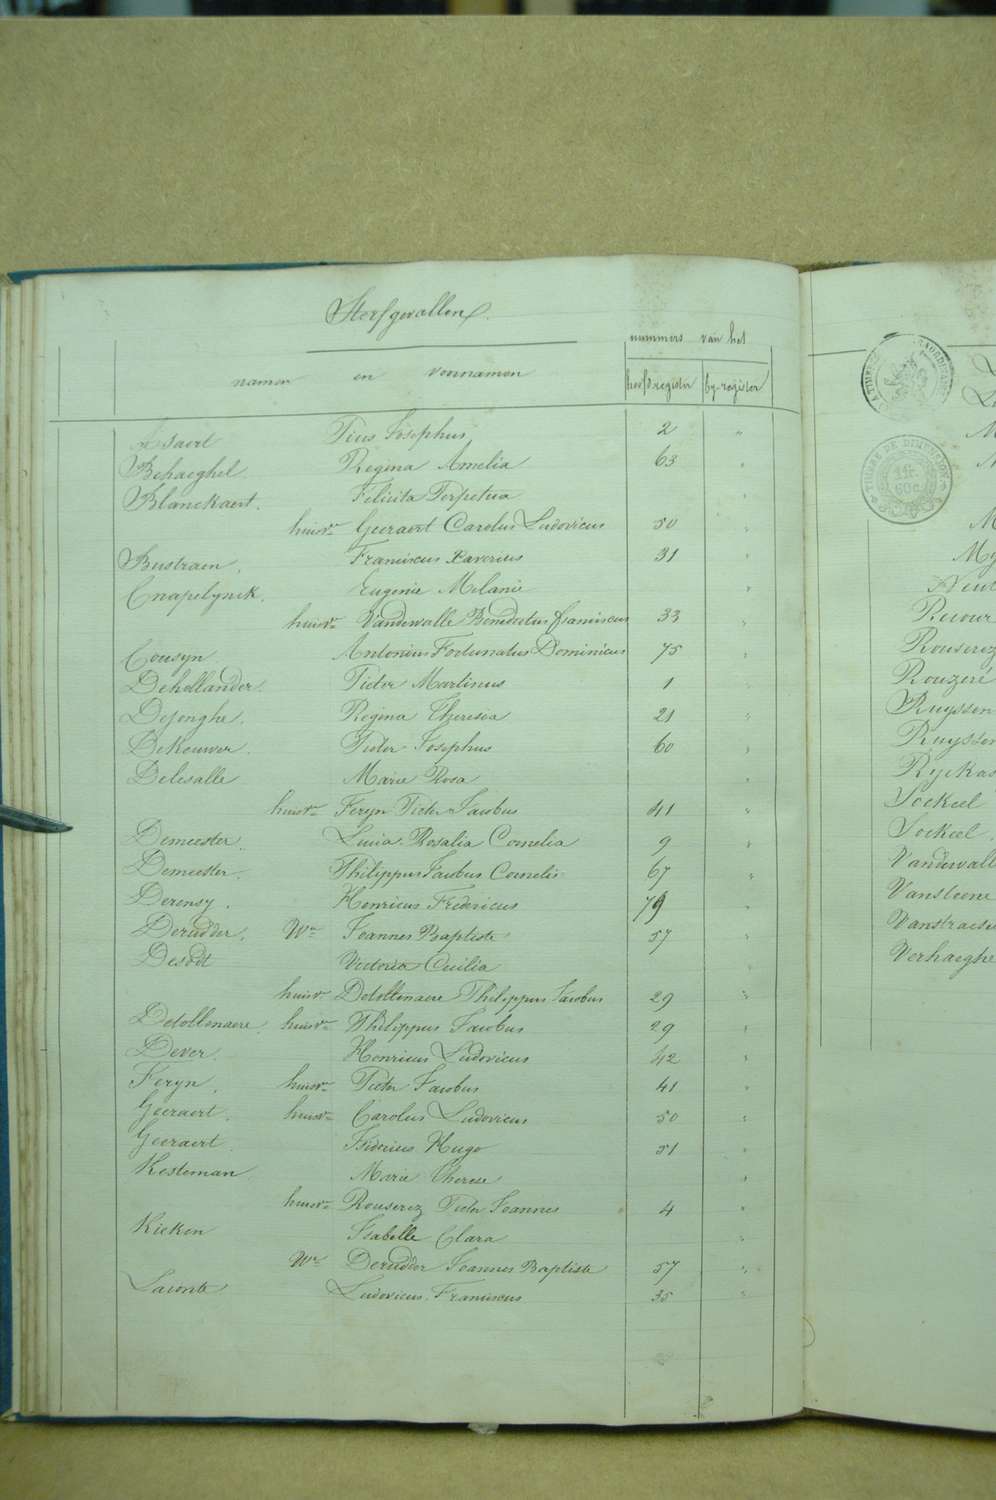 Sterfgevallen.
nummers van het
namen en voornamen hoofd-register by-register
Asaert Pius Josephus 2 "
Behaeghel Regina Amelia 63 "
Blanckaert. Felicita Perpetua "
huisv. Geeraert Carolus Ludovicus 50 "
Bustraen. Franciscus Xaverius 31 "
Cnapelynck. Eugenie Melanie "
huisv. Vandewalle Benedictus Franciscus 33 "
Cousyn Antonius Fortunatus Dominicus 75 "
Dehollander. Pieter Martinus 1 "
Dejonghe. Regina Theresia 21 "
Dekeuwer. Pieter Josephus 60 "
Delesalle Marie Rosa "
huisv. Feryn Pieter Jacobus 41 "
Demeester. Lucia Rosalia Cornelia 9 "
Demeester. Philippus Jacobus Cornelis 67 "
Derensy. Henricus Fredericus 79 "
Derudder. Wr. Joannes Baptiste 57 "
Desodt Victoria Cecilia "
huisv. Detollenaere Philippus Jacobus 29 "
Detollenaere. huisv. Philippus Jacobus 29 "
Dever. Henricus Ludovicus 42 "
Feryn. huisv. Pieter Jacobus 41 "
Geeraert. huisv. Carolus Ludovicus 50 "
Geeraert. Isidorus Hugo 51 "
Kesteman. Marie Therese "
huisv. Rouserez Pieter Joannes 4 "
Kieken Isabelle Clara "
We. Derudder Joannes Baptiste 57 "
Laconte Ludovicus Franciscus 35 "
TIMBRE DE DIMENSION
1fr.
60c.
Recour
Rouserez
Rouzeré
Ruyssen
Ruyssen
Ryckas
Sockeel
Sockeel.
Vandewall
Vansteene
Vanstraese
Verhaeghe